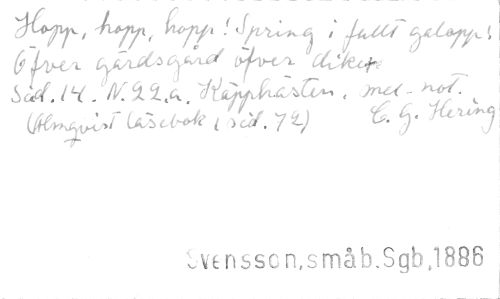 Hopp, hopp, hopp! Spring i fullt galopp!
Öfver gärdsgård öfver dike
Sid. 14. N. 22.a. Käpphästen. med not.
(Almqvist Läsebok, sid. 72) C. G. Hering
Svensson, småb. Sgb, 1886